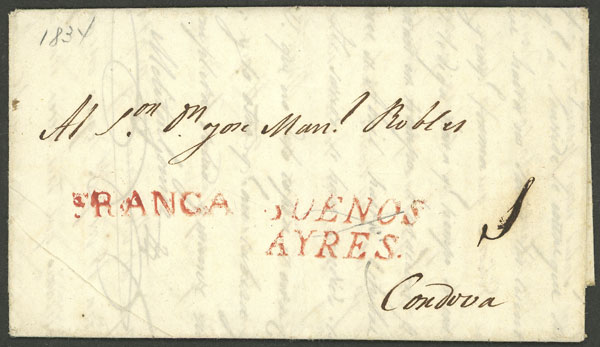 1834
Al S.on D.n Jose Man.l Robles
FRANCA BUENOS
AYRES.
Condova